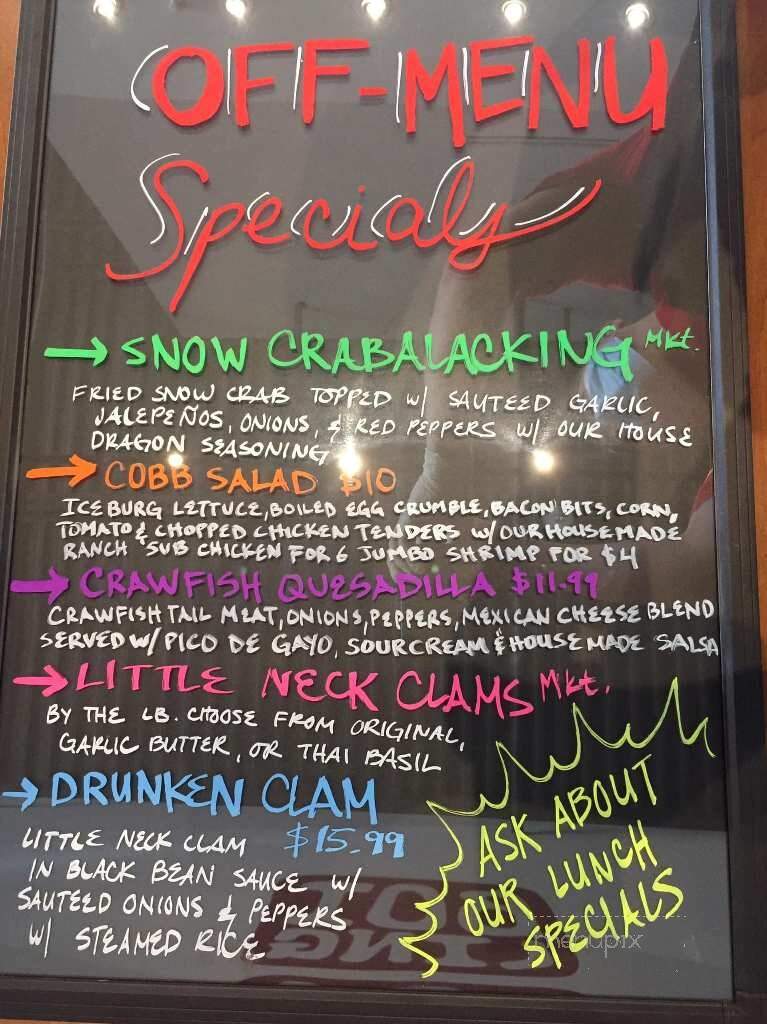 OFF-MENU
Specials
→ SNOW CRABALACKING Mkt.
FRIED SNOW CRAB TOPPED w/ SAUTEED GARLIC,
JALEPEÑOS, ONIONS, & RED PEPPERS w/ OUR HOUSE
DRAGON SEASONING
→ COBB SALAD $10
ICEBURG LETTUCE, BOILED EGG CRUMBLE, BACON BITS, CORN,
TOMATO & CHOPPED CHICKEN TENDERS w/ OUR HOUSEMADE
RANCH *SUB CHICKEN FOR 6 JUMBO SHRIMP FOR $4
→ CRAWFISH QUESADILLA $11.99
CRAWFISH TAIL MEAT, ONIONS, PEPPERS, MEXICAN CHEESE BLEND
SERVED w/ PICO DE GAYO, SOURCREAM & HOUSEMADE SALSA
→ LITTLE NECK CLAMS Mkt.
BY THE LB. CHOOSE FROM ORIGINAL,
GARLIC BUTTER, OR THAI BASIL
→ DRUNKEN CLAM
$15.99
LITTLE NECK CLAM
IN BLACK BEAN SAUCE w/
SAUTEED ONIONS & PEPPERS
w/ STEAMED RICE
ASK ABOUT
OUR LUNCH
SPECIALS
menupix